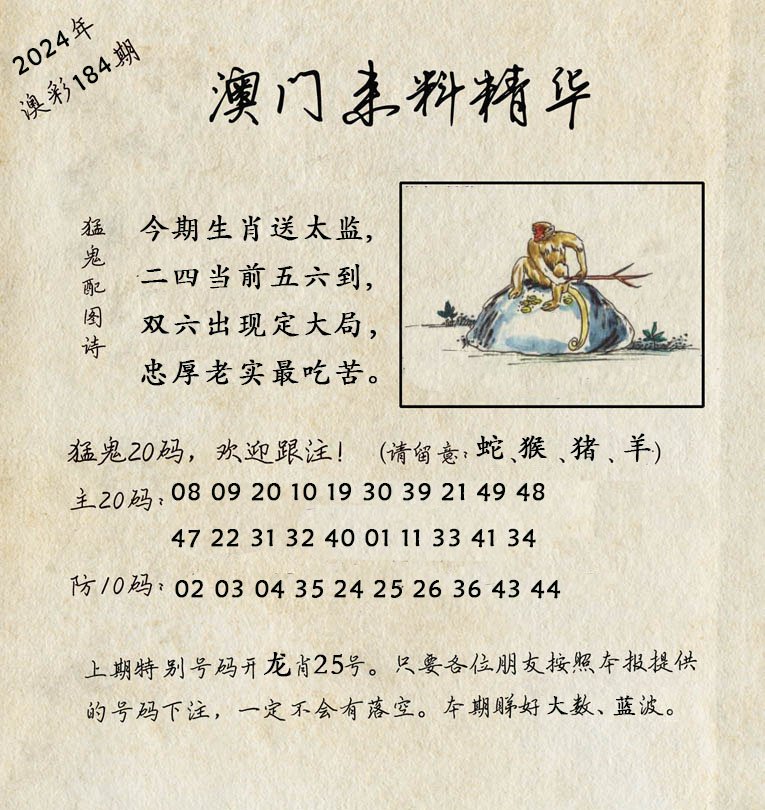 2024年
澳彩184期
澳门来料精华
猛鬼配图诗
今期生肖送太监，
二四当前五六到，
双六出现定大局，
忠厚老实最吃苦。
猛鬼20码，欢迎跟注！（请留意：蛇、猴、猪、羊）
主20码：08 09 20 10 19 30 39 21 49 48
47 22 31 32 40 01 11 33 41 34
防10码：02 03 04 35 24 25 26 36 43 44
上期特别号码开龙肖25号。只要各位朋友按照本报提供
的号码下注，一定不会有落空。本期睇好大数、蓝波。